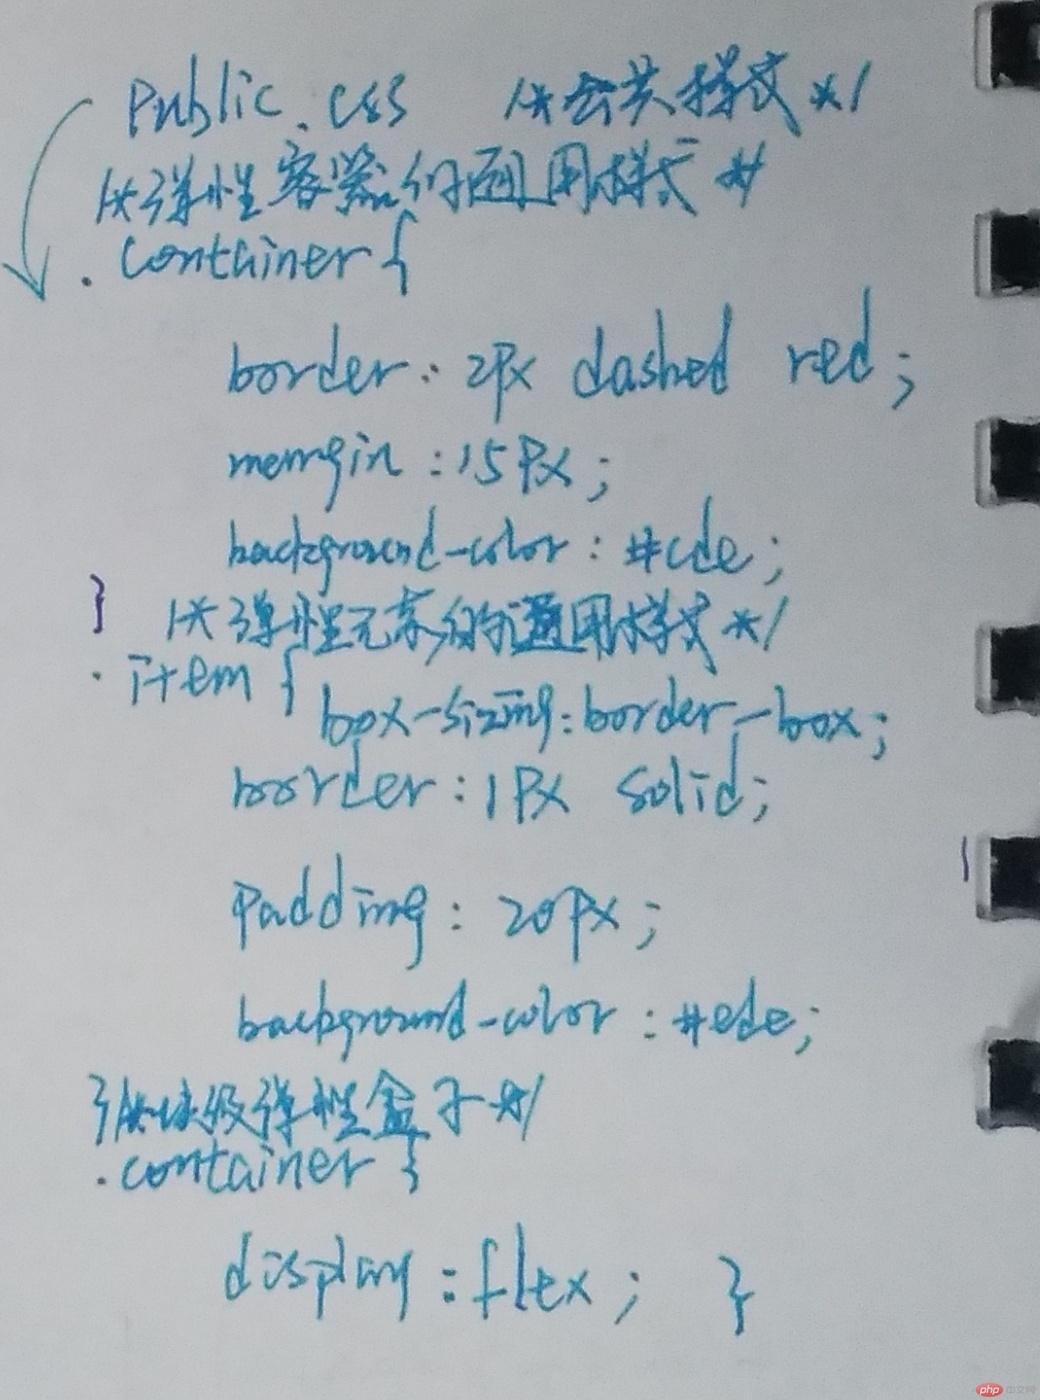 Public.css /*公共样式*/
/*弹性容器的通用样式*/
.container{
border:2px dashed red;
margin:15px;
background-color:#cde;
} /*弹性元素的通用样式*/
.item{
box-sizing:border-box;
border:1px solid;
padding:20px;
background-color:#ede;
}/*块级弹性盒子*/
.container{
display:flex; }
php 中文网